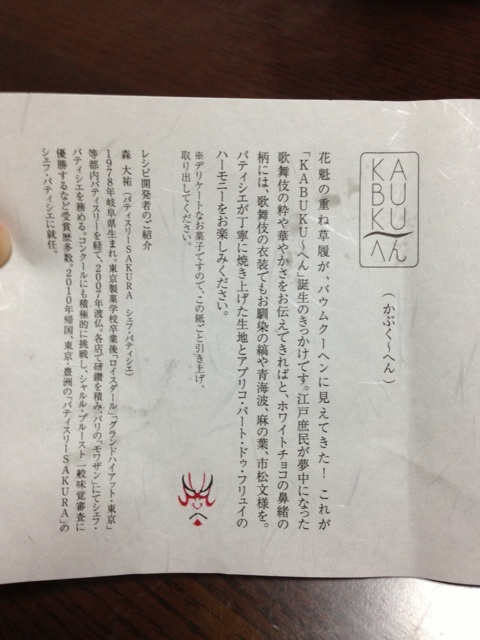 KABUKU〜へん
(かぶく〜へん)
花魁の重ね草履が、バウムクーヘンに見えてきた！ これが
「KABUKU〜へん」誕生のきっかけです。江戸庶民が夢中になった
歌舞伎の粋や華やかさをお伝えできればと、ホワイトチョコの鼻緒の
柄には、歌舞伎の衣装でもお馴染の縞や青海波、麻の葉、市松文様を。
パティシエが丁寧に焼き上げた生地とアプリコ・パート・ドゥ・フリュイの
ハーモニーをお楽しみください。
※デリケートなお菓子ですので、この紙ごと引き上げ、
取り出してください。
レシピ開発者のご紹介
森 大祐（パティスリーSAKURA シェフ・パティシエ）
1978年岐阜県生まれ。東京製菓学校卒業後、「ロイスダール」「グランドハイアット・東京」
等都内パティスリーを経て、2007年渡仏。各店で研鑽を積み、パリの「モワザン」にてシェフ・
パティシエを務める。コンクールにも積極的に挑戦し、シャルル・プルースト 一般味覚審査に
優勝するなど受賞歴多数。2010年帰国、東京・豊洲の「パティスリーSAKURA」の
シェフ・パティシエに就任。